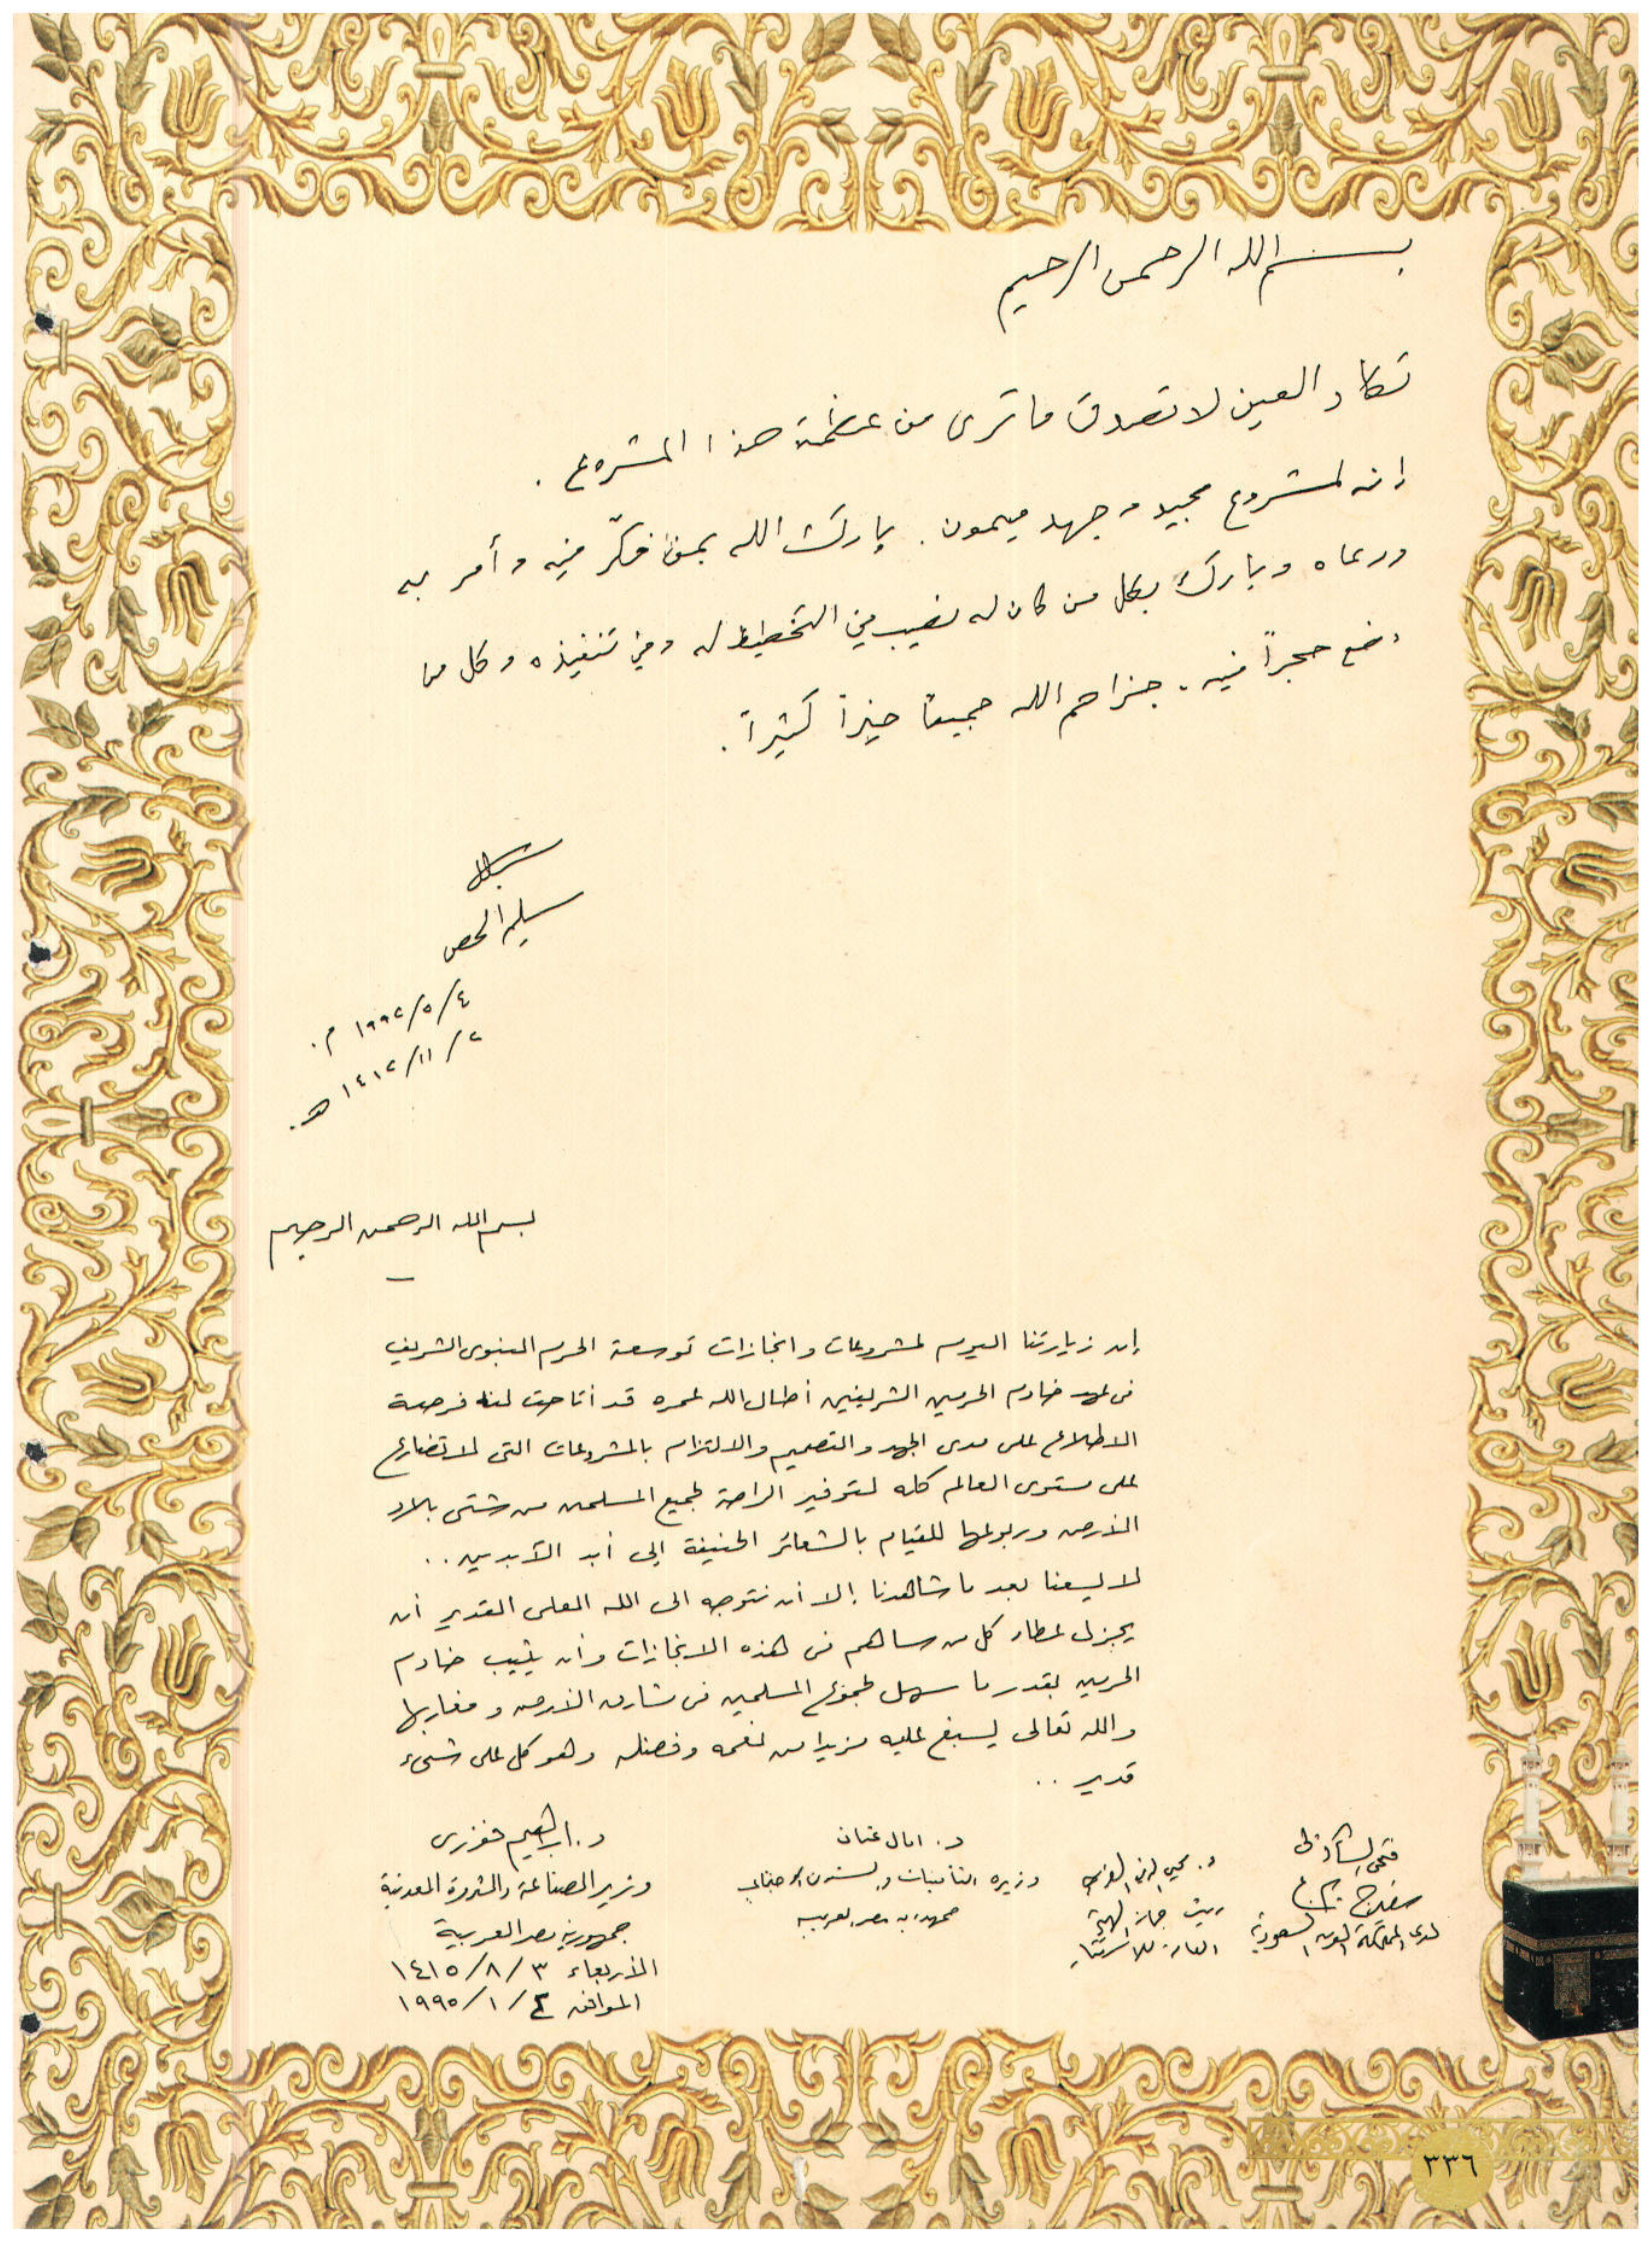 بسم الله الرحمن الرحيم
تكاد العين لا تصدق ما ترى من عظمة هذا المشروع .
إنه لمشروع مجيد وجهد ميمون . بارك الله بمن فكّر فيه وأمر به
ورعاه وبارك بكل من كان له نصيب في التخطيط له وفي تنفيذه وكل من
وضع حجراً فيه . جزاهم الله جميعاً خيراً كثيراً .
سليم الحص
٤/٥/١٩٩٢ م.
٢/١١/١٤١٢ هـ.
بسم الله الرحمن الرحيم
إن زيارتنا اليوم لمشروعات وانجازات توسعة الحرم النبوى الشريف
فى عهد خادم الحرمين الشريفين أطال الله عمره قد أتاحت لنا فرصة
الاطلاع على مدى الجهد والتصميم والالتزام بالمشروعات التى لا تضارع
على مستوى العالم كله لتوفير الراحة لجميع المسلمين من شتى بلاد
الأرض وربوعها للقيام بالشعائر الحنيفة إلى أبد الآبدين ..
لا يسعنا بعد ما شاهدنا إلا أن نتوجه الى الله العلى القدير أن
يجزل عطاء كل من ساهم فى هذه الانجازات وأن يثيب خادم
الحرمين بقدر ما سهل لجموع المسلمين فى مشارق الأرض ومغاربها
والله تعالى يسبغ عليه مزيدا من نعمه وفضله وهو كل على شىء
قدير ..
فتحى الشاذلى
سفير
لدى المملكة العربية السعودية
د. محيي الدين الغريب
رئيس جهاز الهيئة
العامة للاستثمار
د. امال عثمان
وزيرة التأمينات والشئون الاجتماعية
جمهورية مصر العربية
د. ابراهيم فوزى
وزير الصناعة والثروة المعدنية
جمهورية مصر العربية
الأربعاء ٣/٨/١٤١٥
الموافق ٤/١/١٩٩٥
٣٣٦